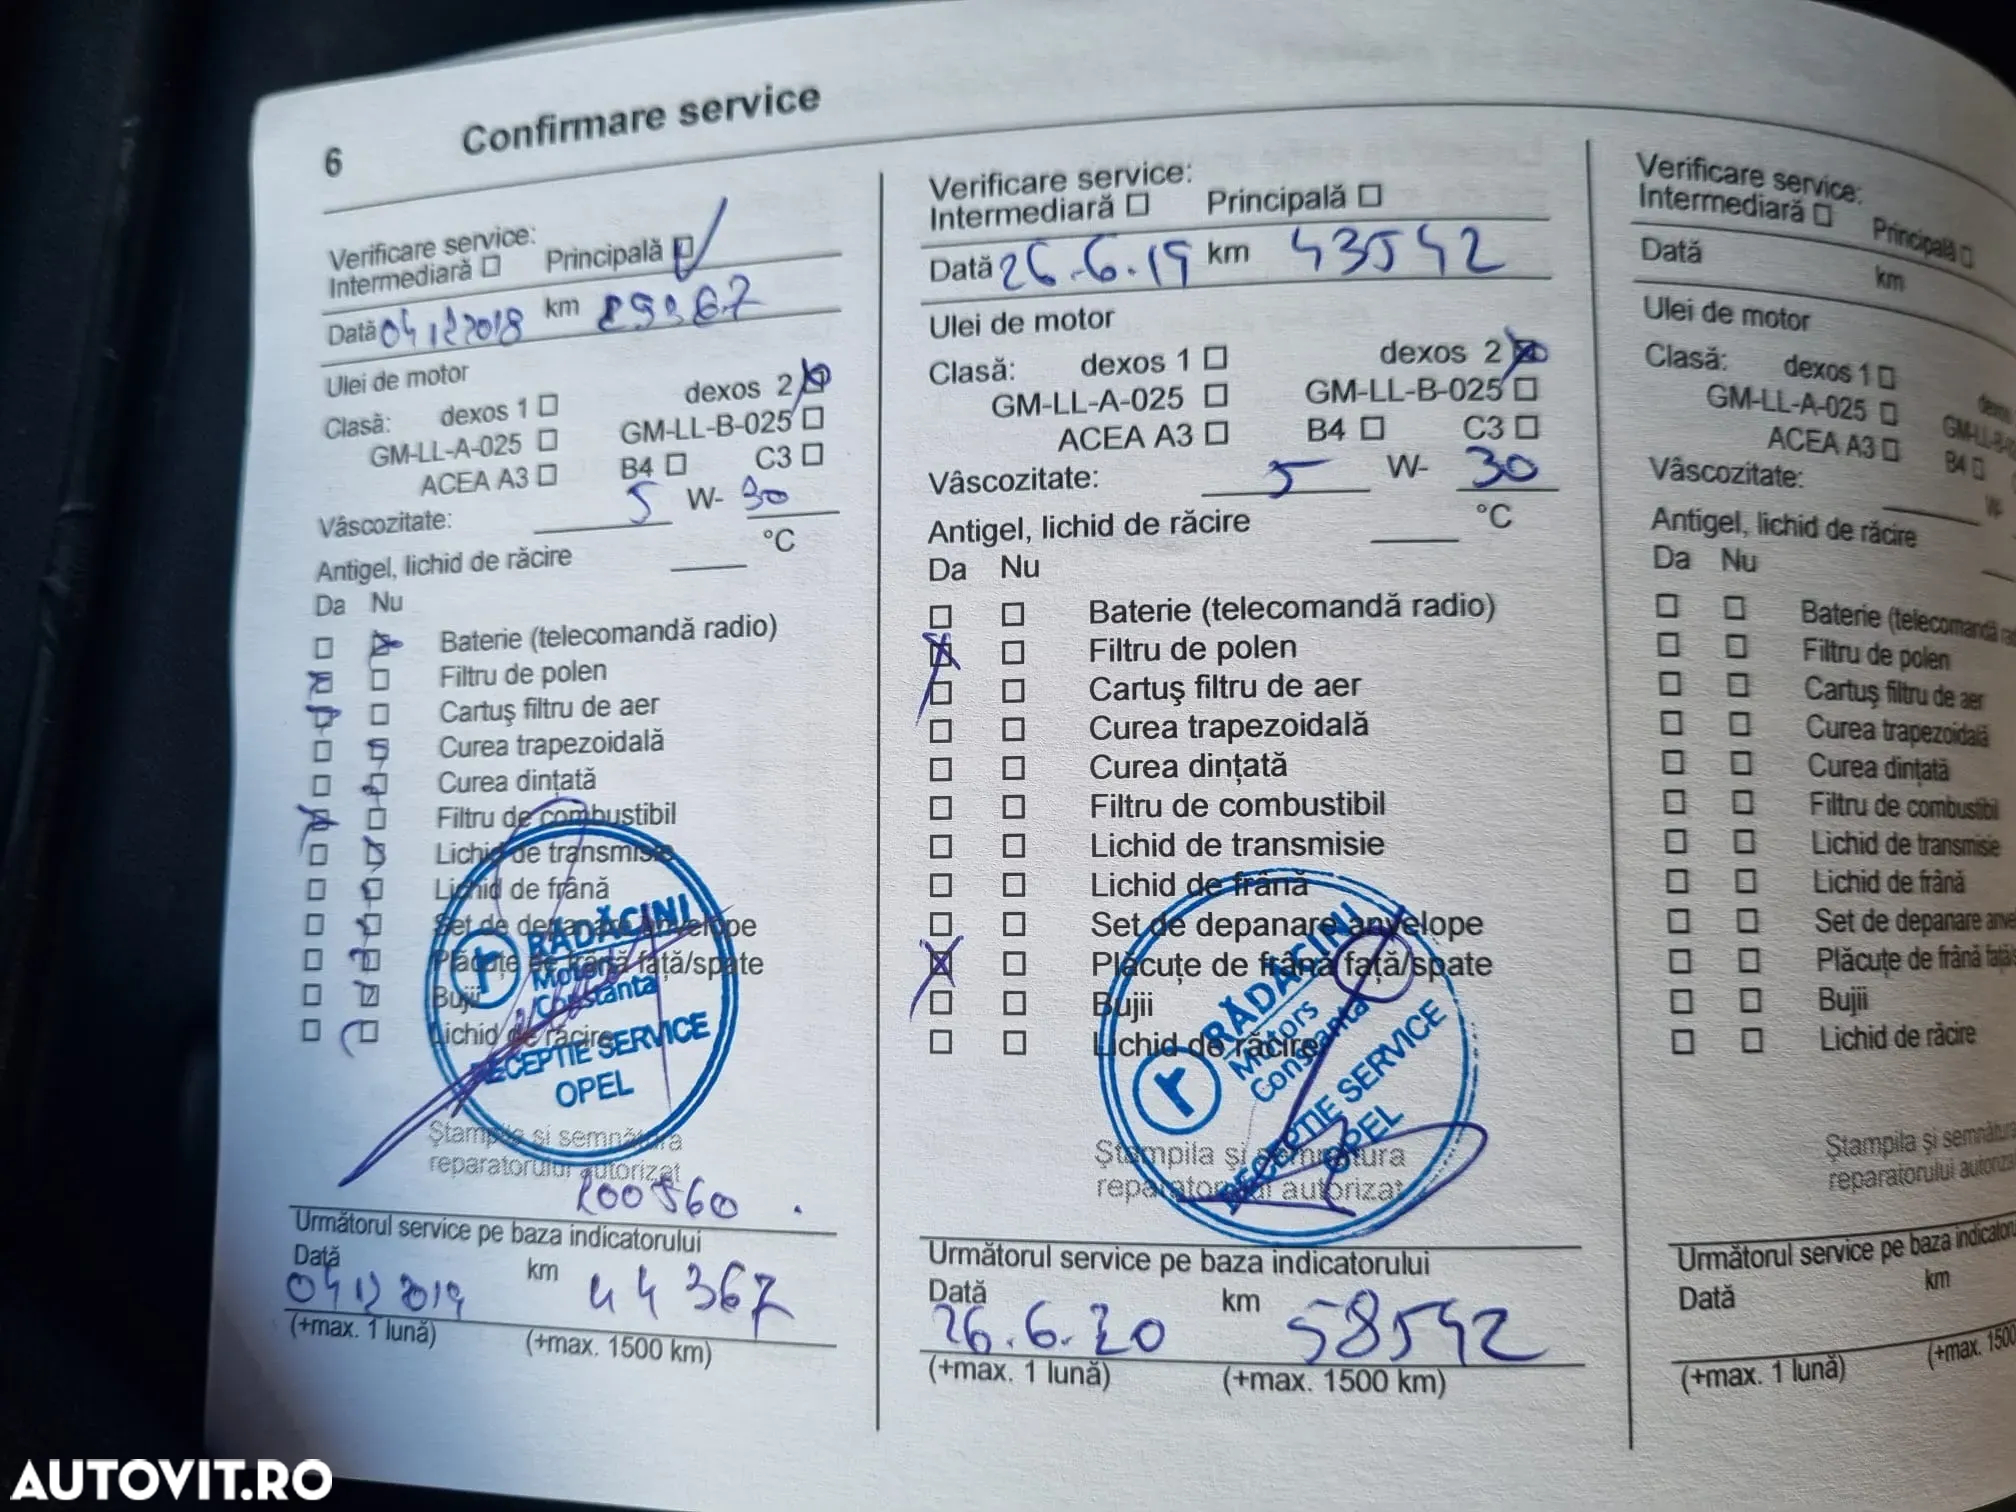 6 Confirmare service
Verificare service:
Intermediară Principală
Dată 04 12 2018 km
Ulei de motor
Clasă: dexos 1 dexos 2
GM-LL-A-025 GM-LL-B-025
ACEA A3 B4 C3
Vâscozitate: 5 W- 30
Antigel, lichid de răcire °C
Da Nu
Baterie (telecomandă radio)
Filtru de polen
Cartuş filtru de aer
Curea trapezoidală
Curea dinţată
Filtru de combustibil
Lichid de transmisie
Lichid de frână
Set de depanare anvelope
Plăcuţe de frână faţă/spate
Bujii
Lichid de răcire
RĂDĂCINI
Motors
Constanta
RECEPTIE SERVICE
OPEL
Ştampila şi semnătura
reparatorului autorizat
200560
Următorul service pe baza indicatorului
Dată km
04 12 2019 44 367
(+max. 1 lună) (+max. 1500 km)
Verificare service:
Intermediară Principală
Dată 26.6.19 km 43542
Ulei de motor
Clasă: dexos 1 dexos 2
GM-LL-A-025 GM-LL-B-025
ACEA A3 B4 C3
Vâscozitate: 5 W- 30
Antigel, lichid de răcire °C
Da Nu
Baterie (telecomandă radio)
Filtru de polen
Cartuş filtru de aer
Curea trapezoidală
Curea dinţată
Filtru de combustibil
Lichid de transmisie
Lichid de frână
Set de depanare anvelope
Plăcuţe de frână faţă/spate
Bujii
Lichid de răcire
RĂDĂCINI
Motors
Constanta
RECEPTIE SERVICE
OPEL
Ştampila şi semnătura
reparatorului autorizat
Următorul service pe baza indicatorului
Dată km
26.6.20 58542
(+max. 1 lună) (+max. 1500 km)
Verificare service:
Intermediară Principală
Dată km
Ulei de motor
Clasă: dexos 1
GM-LL-A-025
ACEA A3 B4
Vâscozitate: W-
Antigel, lichid de răcire
Da Nu
Baterie (telecomandă
Filtru de polen
Cartuş filtru de aer
Curea trapezoidală
Curea dinţată
Filtru de combustibil
Lichid de transmisie
Lichid de frână
Set de depanare
Plăcuţe de frână
Bujii
Lichid de răcire
Ştampila şi semnătura
reparatorului
Următorul service pe baza
Dată km
(+max. 1 lună) (+max. 1500
AUTOVIT.RO